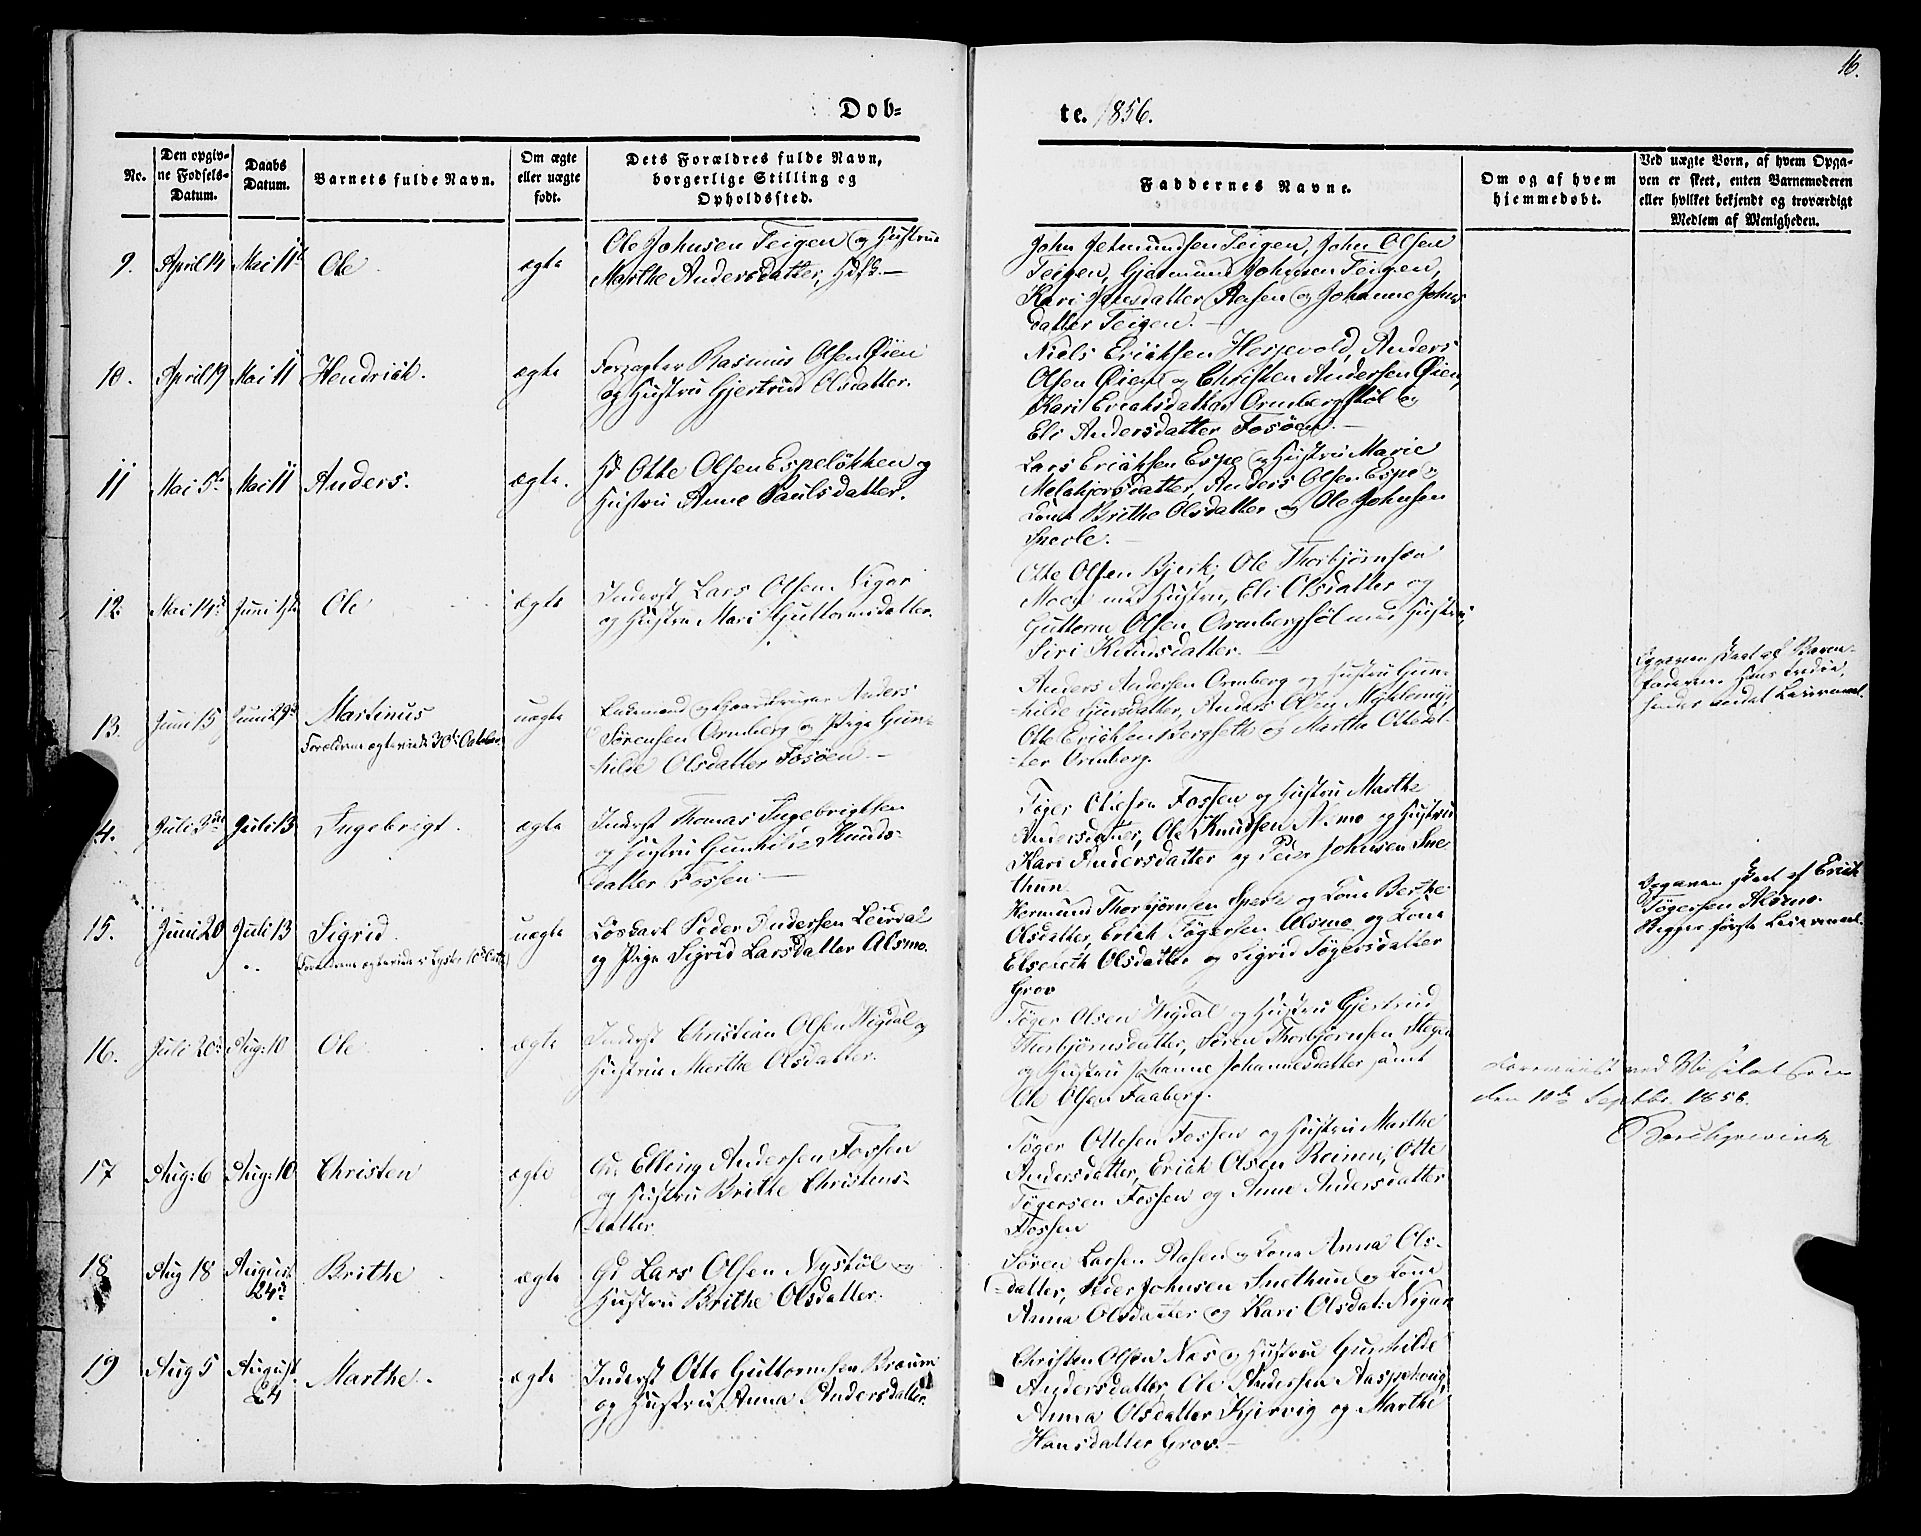 16.
Døb=
te. 1856.
No.
Den opgiv-
ne Fødsels-
Datum.
Daabs
Datum.
Barnets fulde Navn.
Om ægte
eller uægte
født.
Dets Forældres fulde Navn,
borgerlige Stilling og
Opholdssted.
Faddernes Navne.
Om og af hvem
hjemmedøbt.
Ved uægte Børn, af hvem Opga-
ven er skeet, enten Barnemoderen
eller hvilket bekjendt og troværdigt
Medlem af Menigheden.
9. April 14 Mai 11te Ole ægte
Ole Johnsen Teigen og Hustrue
Marthe Andersdatter,
John Jetmundsen Teigen, John Olsen
Teigen, Gjetmund Johnsen Teigen,
Kari Jensdatter Aasen og Johanne Johns
datter Teigen.
10. April 19 Mai 11 Hendrick. ægte
Forpagter Rasmus Olsen Øien
og Hustru Gjertrud Olsdatter.
Niels Ericksen Hessevold, Anders
Olsen Øien og Christen Andersen Øien,
Kari Ericksdatter Ormbergstøl og
Eli Andersdatter Fosøen.
11 Mai 5te Mai 11 Anders. ægte.
Otte Olsen Espeløkken og
Hustru Anne Paulsdatter.
Lars Ericksen Espe og Hustru Marie
Melchjorsdatter, Anders Olsen Espe og
Kone Brithe Olsdatter og Ole Johnsen
Sperle.
12. Mai 14de Juni 1ste Ole ægte
Inderst Lars Olsen Nigar
og Hustru Mari Guttormsdatter.
Otte Olsen Bjerk, Ole Thorbjørnsen
Moen med Hustru, Eli Olsdatter og
Guttorm Olsen Ormbergstøl med Hustru
Siri Knudsdatter.
13. Juni 15 Juni 29de Martinus uægte
Forældrene ægteviede 30te October
Enkemand og Gaardbruger Anders
Sørensen Ormberg og Pige Gun-
hilde Olsdatter Fosøen.
Anders Andersen Ormberg og Hustru Gun-
hilde Andersdatter, Anders Olsen Myklemyr,
Otte Ericksen Bergseth og Marthe Ottesdat-
ter Ormberg.
Opgaven skeet af Barne-
faderen. Hans tredie,
hendes andet Leiermaal.
4. Juli 3die Juli 13 Ingebrigt. ægte
Inderst Thomas Ingebrigtsen
og Hustru Gunhilde Knuds-
datter Fossen.
Tøger Ottesen Fossen og Hustru Marthe
Andersdatter, Ole Knudsen Alsmo og Hustru
Kari Andersdatter og Peder Johnsen Sne-
thun.
15. Juni 20 Juli 13 Sigrid. uægte
Forældrene ægteviede i Lyster
Løskarl Peder Andersen Leirdal
og Pige Sigrid Larsdatter Alsmo.
Hermund Thorbjørnsen Sperle og Kone Berthe
Olsdatter, Erick Tøgersen Alsmo og Kone
Elsebeth Olsdatter og Sigrid Tøgersdatter
Grov
Opgaven skeet af Erick
Tøgersen Alsmo.
Begges første Leiermaal.
16. Juli 20de Aug: 10 Ole ægte
Inderst Christian Olsen Vigdal og
Hustrue Marthe Olsdatter.
Tøger Olsen Vigdal og Hustru Gjertrud
Thorbjørnsdatter, Søren Thorbjørnsen Stegen
og Hustru Johanne Johannesdatter samt
Ole Olsen Faaberg.
Foreviist ved Visitatsen
den 10de Septbr. 1856.
17 Aug: 6 Aug: 10 Christen ægte
Gd. Elling Andersen Fossen
og Hustru Brithe Christens-
datter.
Tøger Ottesen Fossen og Hustru Marthe
Andersdatter, Erick Olsen Reinen, Otte
Tøgersen Fossen og Anne Andersdatter
Fossen
18 Aug 18 August 24de Brithe ægte
Gd Lars Olsen Nystøl og
Hustru Brithe Olsdatter.
Søren Larsen Aasen og Kone Anna Ols-
datter, Peder Johnsen Snethun og Kone
Anna Olsdatter og Kari Olsdat: Nigar
19 Aug 5 August 24 Marthe. ægte
Inderst Otte Guttormsen Bræum
og Hustru Anna Andersdatter.
Christen Olsen Næs og Hustru Gunhilde
Andersdatter, Ole Andersen Aaspehoug,
Anna Olsdatter Kjervig og Marthe
Hansdatter Grov.